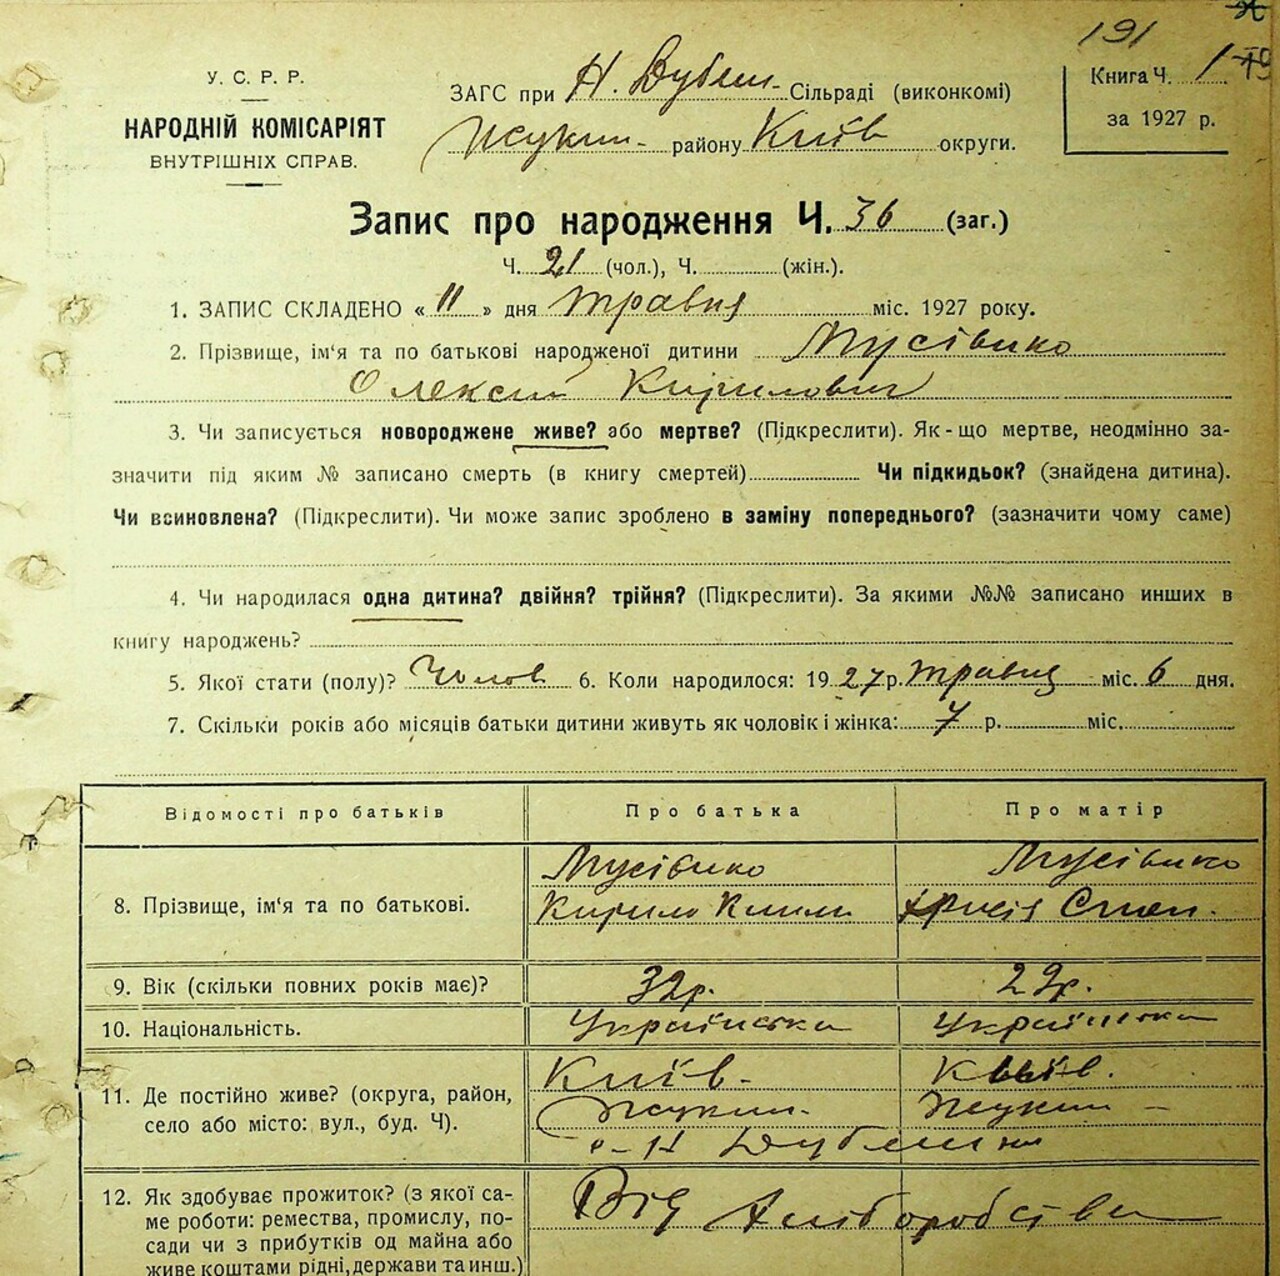 191
У. С. Р. Р.
НАРОДНІЙ КОМІСАРІЯТ
ВНУТРІШНІХ СПРАВ.
ЗАГС при Н. Дубеч. Сільраді (виконкомі)
Жукин- району Київ округи.
Книга Ч. 1
за 1927 р.
Запис про народження Ч. 36 (заг.)
Ч. 21 (чол.), Ч. (жін.).
1. ЗАПИС СКЛАДЕНО « 11 » дня травня міс. 1927 року.
2. Прізвище, ім'я та по батькові народженої дитини Мусієнко
Олексій Кирилович
3. Чи записується новороджене живе? або мертве? (Підкреслити). Як-що мертве, неодмінно за-
значити під яким № записано смерть (в книгу смертей) Чи підкидьок? (знайдена дитина).
Чи всиновлена? (Підкреслити). Чи може запис зроблено в заміну попереднього? (зазначити чому саме)
4. Чи народилася одна дитина? двійня? трійня? (Підкреслити). За якими №№ записано инших в
книгу народжень?
5. Якої стати (полу)? Чолов 6. Коли народилося: 1927 р. травня міс. 6 дня.
7. Скільки років або місяців батьки дитини живуть як чоловік і жінка: 7 р. міс.
Відомості про батьків Про батька Про матір
8. Прізвище, ім'я та по батькові. Мусієнко Кирило Клим Мусієнко
9. Вік (скільки повних років має)? 32р. 29р.
10. Національність. Українська Українська
11. Де постійно живе? (округа, район, село або місто: вул., буд. Ч). Київ. Київ.
Жукин. Жукин –
с-Н Дубечня
12. Як здобуває прожиток? (з якої са-
ме роботи: ремества, промислу, по-
сади чи з прибутків од майна або
живе коштами рідні, держави та инш.)
Від хліборобства